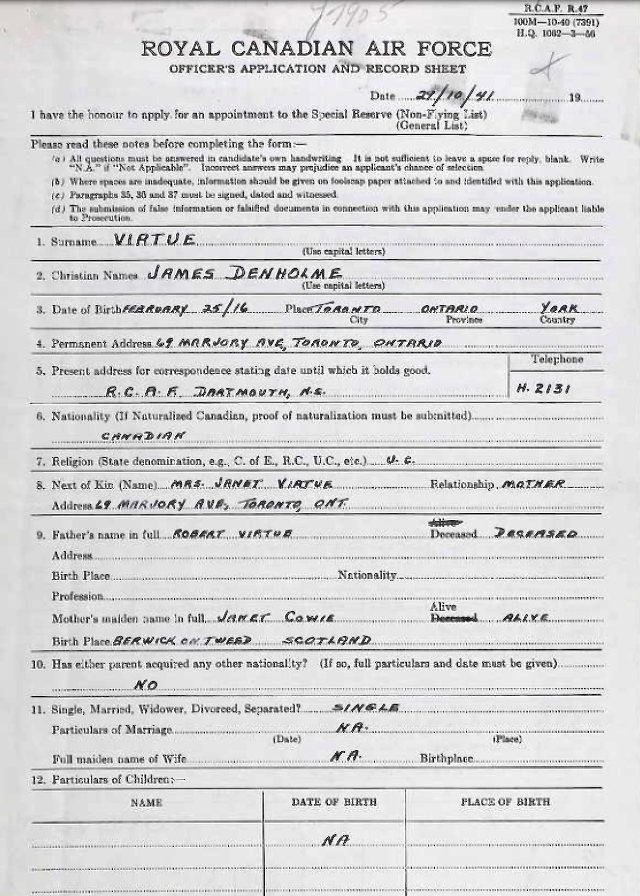 J7905
R.C.A.F. R.47
100M—10-40 (7391)
H.Q. 1062—3—56
ROYAL CANADIAN AIR FORCE
OFFICER'S APPLICATION AND RECORD SHEET
Date 29/10/41 19
I have the honour to apply for an appointment to the Special Reserve (Non-Flying List)
(General List)
Please read these notes before completing the form:—
(a) All questions must be answered in candidate's own handwriting It is not sufficient to leave a space for reply, blank. Write
"N.A." if "Not Applicable". Incorrect answers may prejudice an applicant's chance of selection
(b) Where spaces are inadequate, information should be given on foolscap paper attached to and identified with this application.
(c) Paragraphs 35, 36 and 37 must be signed, dated and witnessed.
(d) The submission of false information or falsified documents in connection with this application may render the applicant liable
to Prosecution.
1. Surname VIRTUE
(Use capital letters)
2. Christian Names JAMES DENHOLME
(Use capital letters)
3. Date of Birth FEBRUARY 25/16 Place TORONTO ONTARIO YORK
City Province Country
4. Permanent Address 69 MARJORY AVE, TORONTO, ONTARIO
5. Present address for correspondence stating date until which it holds good. Telephone
R.C.A.F. DARTMOUTH, N.S. H.2131
6. Nationality (If Naturalized Canadian, proof of naturalization must be submitted)
CANADIAN
7. Religion (State denomination, e.g., C. of E., R.C., U.C., etc.) U.C.
8. Next of Kin (Name) MRS. JANET VIRTUE Relationship MOTHER
Address 69 MARJORY AVE, TORONTO, ONT.
9. Father's name in full ROBERT VIRTUE Alive
Deceased DECEASED
Address
Birth Place Nationality
Profession
Mother's maiden name in full JANET COWIE Alive
Deceased ALIVE
Birth Place BERWICK ON TWEED SCOTLAND
10. Has either parent acquired any other nationality? (If so, full particulars and date must be given)
NO
11. Single, Married, Widower, Divorced, Separated? SINGLE
Particulars of Marriage N.A.
(Date) (Place)
Full maiden name of Wife N.A. Birthplace
12. Particulars of Children:—
NAME DATE OF BIRTH PLACE OF BIRTH
NA